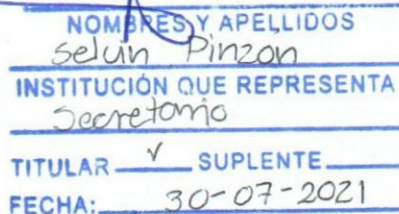 NOMBRES Y APELLIDOS
Seluin Pinzon
INSTITUCIÓN QUE REPRESENTA
Secretario
TITULAR √ SUPLENTE
FECHA: 30-07-2021